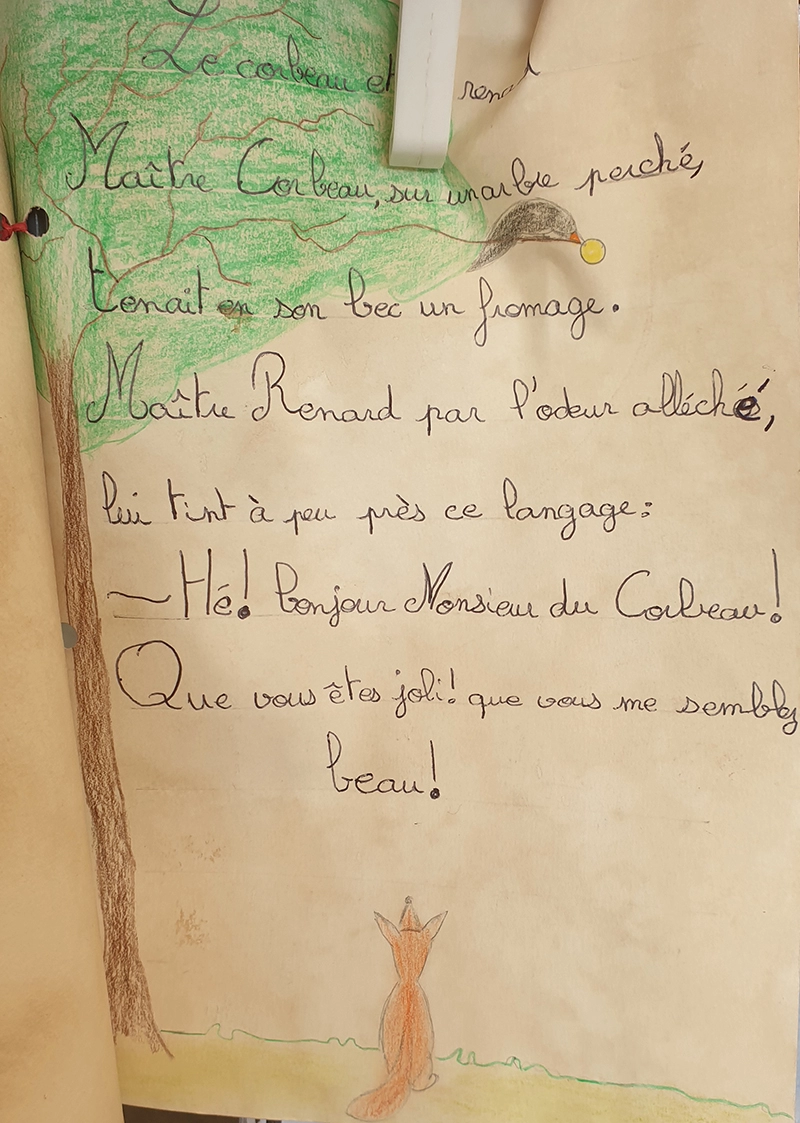 Le corbeau et renard
Maître Corbeau, sur un arbre perché,
tenait en son bec un fromage.
Maître Renard par l'odeur alléché,
lui tint à peu près ce langage:
— Hé! bonjour Monsieur du Corbeau!
Que vous êtes joli! que vous me semblez
beau!